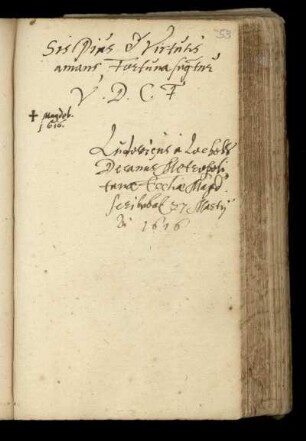 53
Sis Pius & Virtutis
amans Fortuna sequetur
V. D. C. F
+ Magdeb.
1616.
Ludovicus a Lochow
Decanus Metropoli
tanæ Ecclæ Magd.
scribebat 27 Martij
Aº 1616